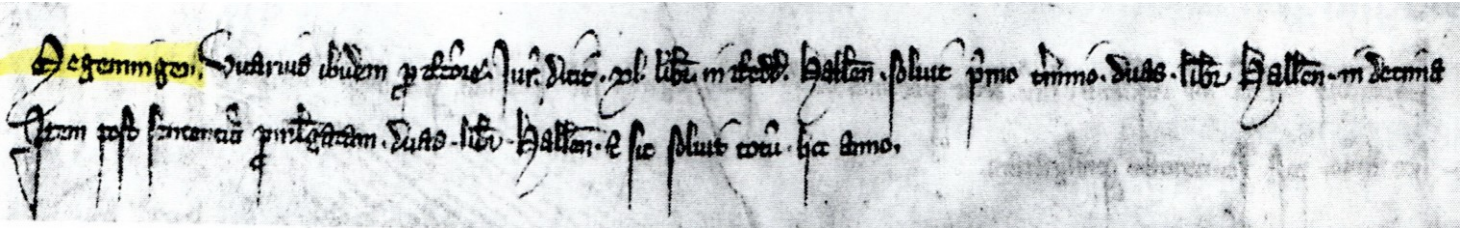 Degemingen. Vicarius ibidem p rectore. Jur. dicit. xl. libr. in redd. Hallen. soluit pmo tmino. duas. libr Hallen. in decima
Item post sentenciā pmlgatam. duas. libr. Hallen. & sic soluit totū. hoc anno.